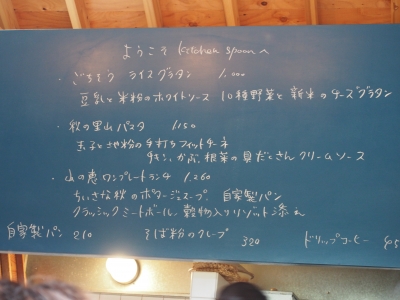 ようこそ kitchen spoonへ
・ごちそう ライスグラタン 1,000
豆乳と米粉のホワイトソース 10種野菜と新米のチーズグラタン
・秋の里山パスタ 1150
玉子とそば粉の手打ちフィットチーネ
チキン、かぶ、根菜の具だくさんクリームソース
・山の恵ワンプレートランチ 1,260
ちいさな秋のポタージュスープ、自家製パン
クラッシックミートボール 穀物入りリゾット添え
自家製パン 210 そば粉のクレープ 320 ドリップコーヒー